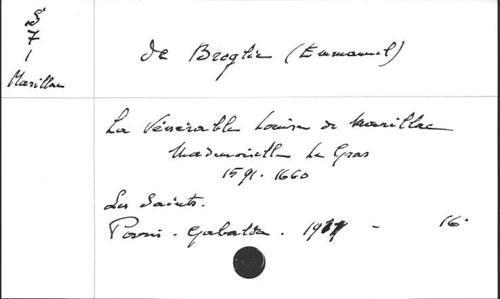 S
71
Marillac
de Broglie (Emmanuel)
La Vénérable Louise de Marillac
Mademoiselle Le Gras
1591-1660
Les Saints.
Paris - Gabalda. 1911 - 16°